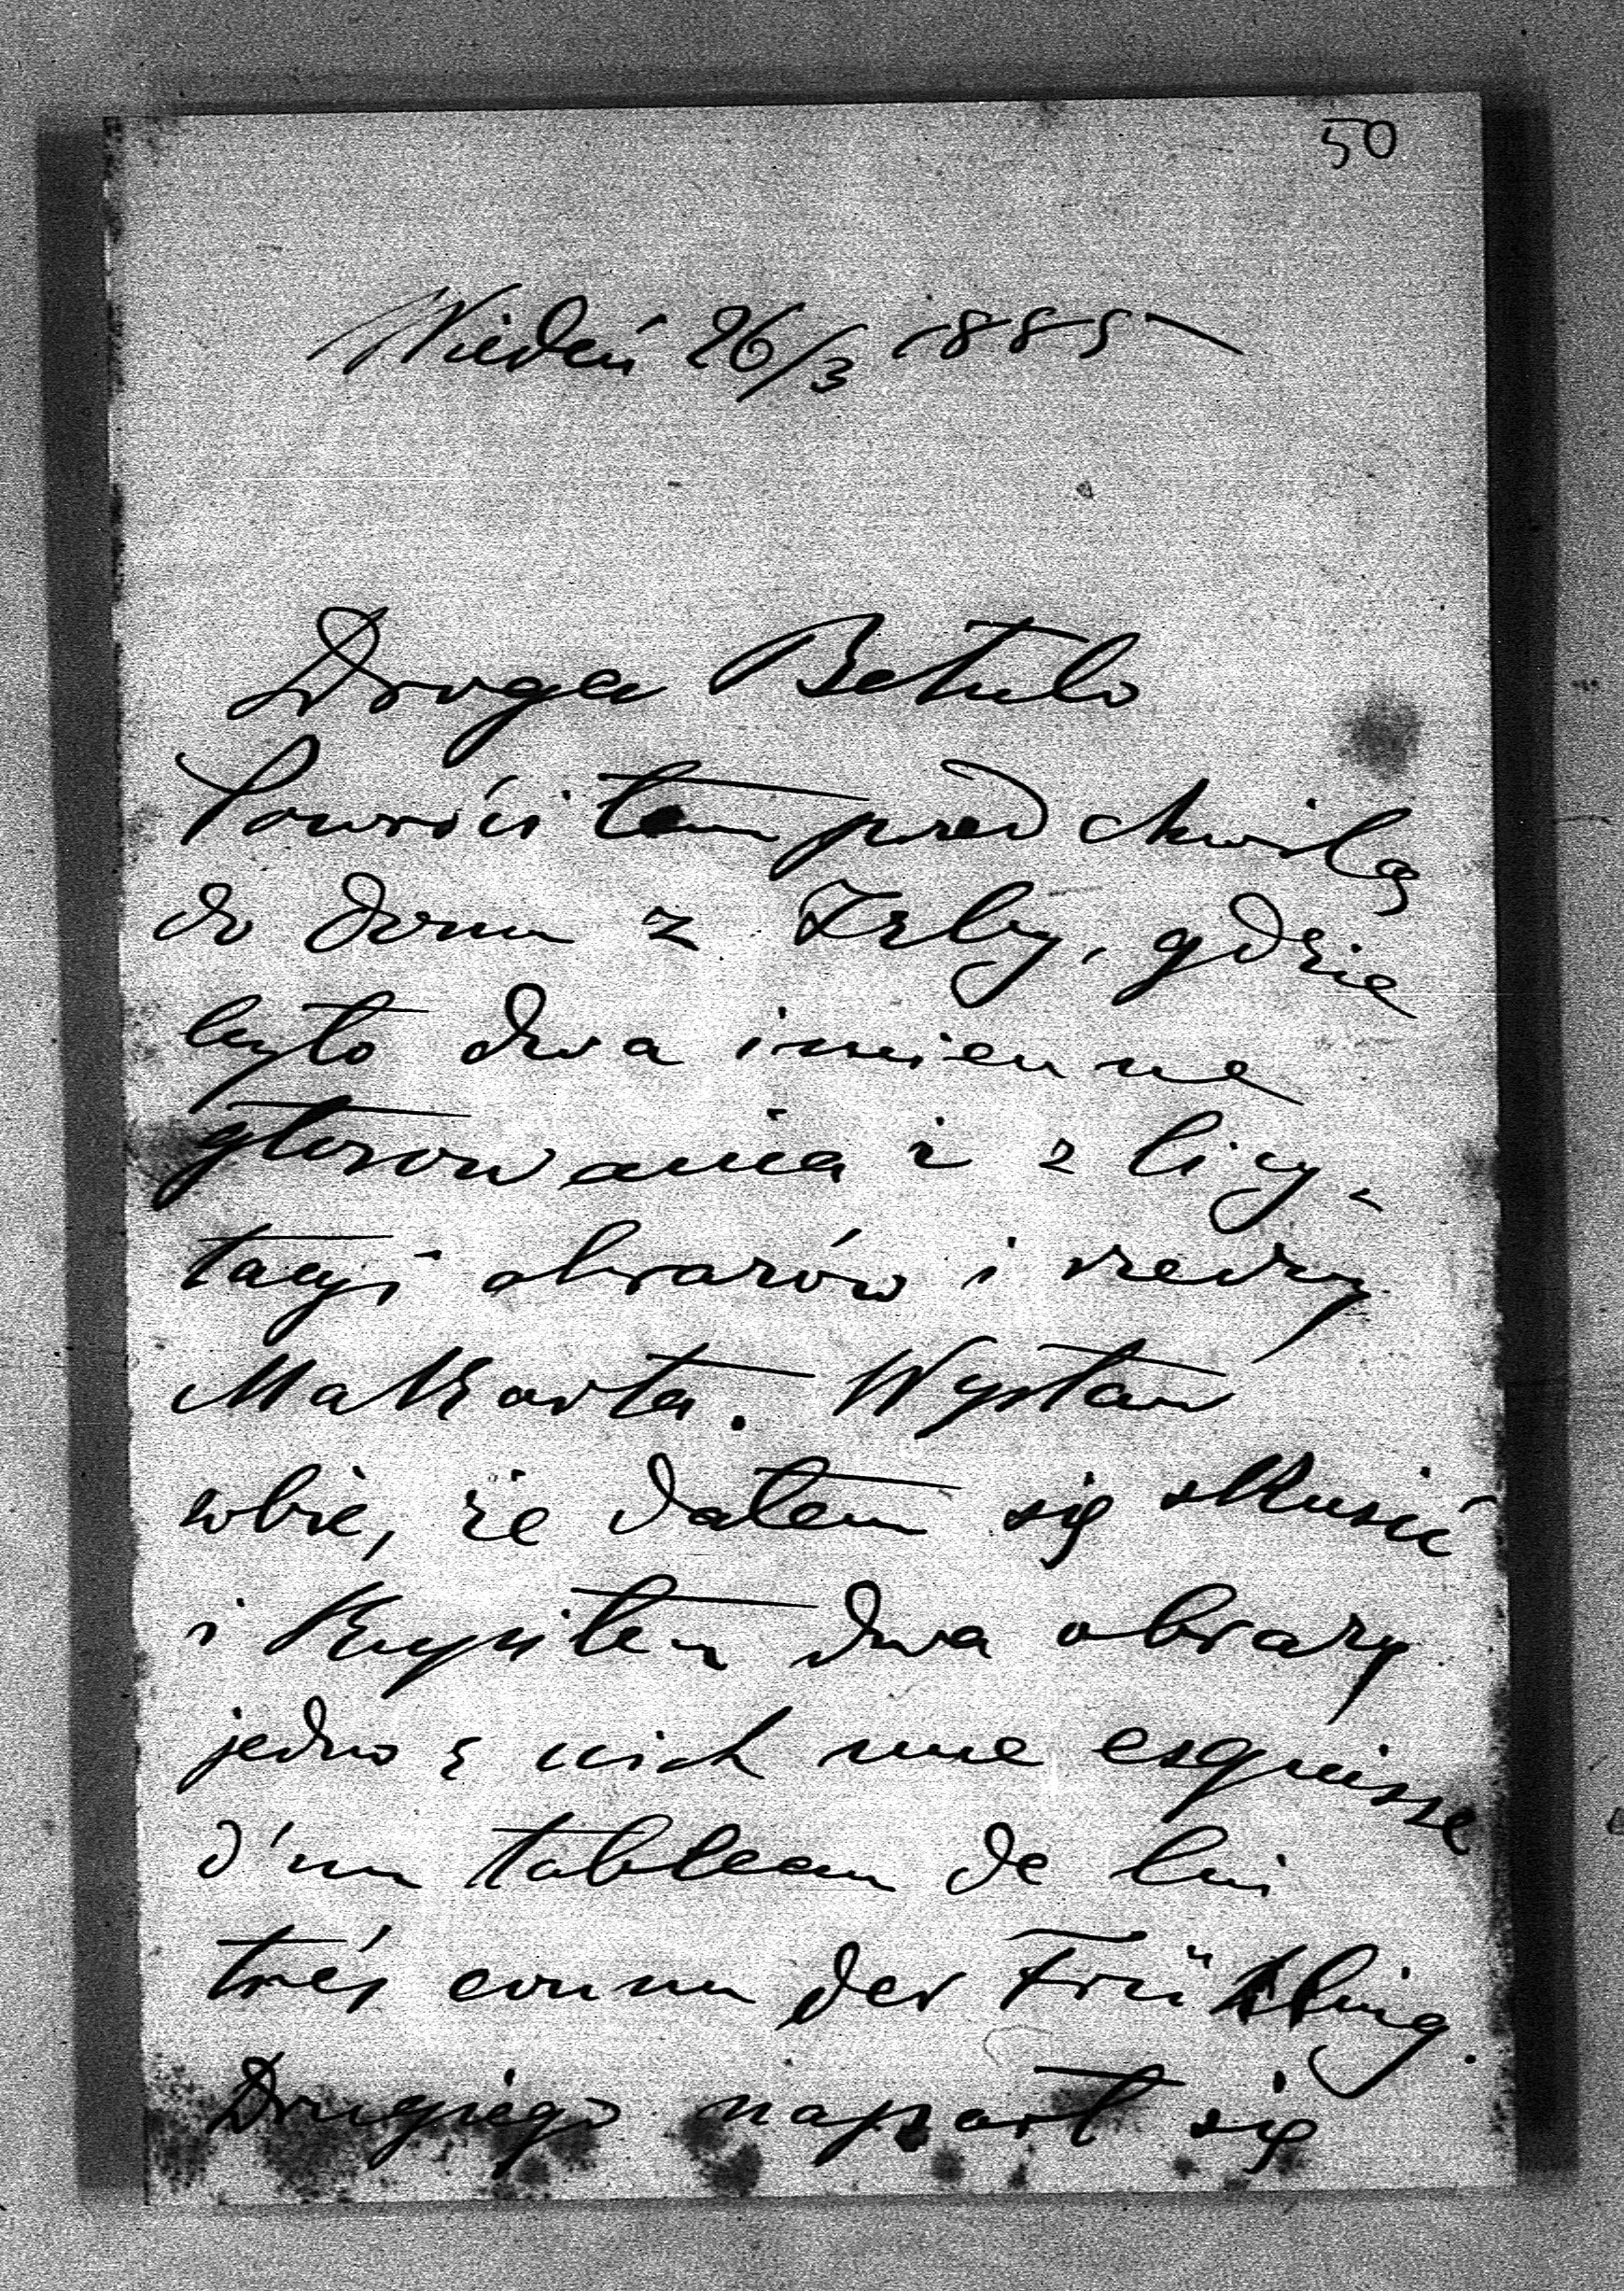 50
Wiedeń 26/3 1885
Droga Betulo
Powróciłem przed chwilą
do domu z Izby, gdzie
było dwa imienne
głosowania i z licy-
tacyi obrazów i rzeczy
Makarta. Wystaw
sobie, że dałem się skusić
i kupiłem dwa obrazy
jedno z nich une esquisse
d'un tableau de lui
très connu der Frühling.
Drugiego naparł się